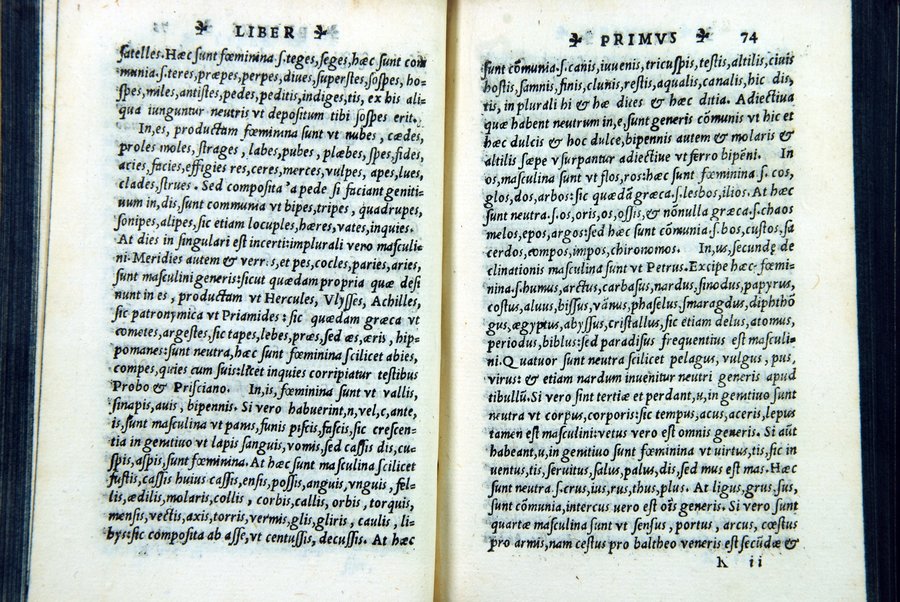 LIBER
ſatelles. Hæc ſunt fœminina .ſ. teges, ſeges, hæc ſunt com
munia .ſ. teres, præpes, perpes, diues, ſuperſtes, ſoſpes, ho-
ſpes, miles, antiſtes, pedes, peditis, indiges, tis, ex his ali-
qua iunguntur neutris vt depoſitum tibi ſoſpes erit.
In, es, productam fœminina ſunt vt nubes, cædes,
proles moles, ſtrages, labes, pubes, plæbes, ſpes, fides,
acies, facies, effigies res, ceres, merces, vulpes, apes, lues,
clades, ſtrues. Sed compoſita a pede ſi faciant geniti-
uum in, dis, ſunt communia vt bipes, tripes, quadrupes,
ſonipes, alipes, ſic etiam locuples, hæres, vates, inquies.
At dies in ſingulari eſt incerti: implurali vero maſculi-
ni. Meridies autem & verres, et pes, cocles, paries, aries,
ſunt maſculini generis: ſicut quædam propria quæ deſi
nunt in es, productam vt Hercules, Vlyſſes, Achilles,
ſic patronymica vt Priamides: ſic quædam græca vt
cometes, argeſtes, ſic tapes, lebes, præs, ſed æs, æris, hip-
pomanes: ſunt neutra, hæc ſunt fœminina ſcilicet abies,
compes, quies cum ſuis: licet inquies corripiatur teſtibus
Probo & Priſciano. In, is, fœminina ſunt vt vallis,
ſinapis, auis, bipennis. Si vero habuerint, n, vel, c, ante,
is, ſunt maſculina vt panis, funis piſcis, faſcis, ſic creſcen-
tia in genitiuo vt lapis ſanguis, vomis, ſed caſſis dis, cu-
ſpis, aſpis, ſunt fœminina. At hæc ſunt maſculina ſcilicet
fuſtis, caſſis huius caſſis, enſis, poſſis, anguis, vnguis, fel-
lis, ædilis, molaris, collis, corbis, callis, orbis, torquis,
menſis, vectis, axis, torris, vermis, glis, gliris, caulis, li-
bys: ſic compoſita ab aſſe, vt centuſſis, decuſſis. At hæc
PRIMVS 74
ſunt cõmunia .ſ. canis, iuuenis, tricuſpis, teſtis, altilis, ciuis
hoſtis, ſamnis, finis, clunis, reſtis, aqualis, canalis, hic dis,
tis, in plurali hi & hæ dites & hæc ditia. Adiectiua
quæ habent neutrum in, e, ſunt generis cõmunis vt hic et
hæc dulcis & hoc dulce, bipennis autem & molaris &
altilis ſæpe vſurpantur adiectiue vt ferro bipẽni. In
os, maſculina ſunt vt flos, ros: hæc ſunt fœminina .ſ. cos,
glos, dos, arbos: ſic quædã græca .ſ. lesbos, ilios. At hæc
ſunt neutra .ſ. os, oris, os, oſſis, & nõnulla græca .ſ. chaos
melos, epos, argos: ſed hæc ſunt cõmunia .ſ. bos, cuſtos, ſa
cerdos, compos, impos, chironomos. In, us, ſecundę de
clinationis maſculina ſunt vt Petrus. Excipe hæc fœmi-
nina .ſ. humus, arctus, carbaſus, nardus, ſinodus, papyrus,
coſtus, aluus, biſſus, vãnus, phaſelus ſmaragdus, diphthõ
gus, ægyptus, abyſſus, criſtallus, ſic etiam delus, atomus,
periodus, biblus: ſed paradiſus frequentius eſt maſculi-
ni. Quatuor ſunt neutra ſcilicet pelagus, vulgus, pus,
virus: & etiam nardum inuenitur neutri generis apud
tibullũ. Si vero ſint tertiæ et perdant, u, in genitiuo ſunt
neutra vt corpus, corporis: ſic tempus, acus, aceris, lepus
tamen eſt maſculini: vetus vero eſt omnis generis. Si aũt
habeant, u, in genitiuo ſunt fœminina vt virtus, tis, ſic in
uentus, tis, ſeruitus, ſalus, palus, dis, ſed mus eſt mas. Hæc
ſunt neutra .ſ. crus, ius, rus, thus, plus. At ligus, grus, ſus,
ſunt cõmunia, intercus uero eſt oĩs generis. Si vero ſunt
quartæ maſculina ſunt vt ſenſus, portus, arcus, cœſtus
pro armis, nam ceſtus pro baltheo veneris eſt ſecũdæ &
K ii